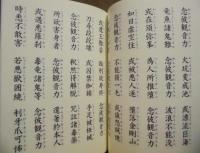 念彼觀音力 火坑變成池 或漂流巨海
龍魚諸鬼難 念彼觀音力 波浪不能沒
或在須弥峯 為人所推墮 念彼觀音力
如日虛空住 或被惡人逐 墮落金剛山
念彼觀音力 不能損一毛 或值怨賊繞
各執刀加害 念彼觀音力 咸即起慈心
或遭王難苦 臨刑欲壽終 念彼觀音力
刀尋段段壞 或囚禁枷鎖 手足被杻械
念彼觀音力 釋然得解脫 呪詛諸毒藥
所欲害身者 念彼觀音力 還著於本人
或遇惡羅刹 毒龍諸鬼等 念彼觀音力
時悉不敢害 若惡獸圍遶 利牙爪可怖